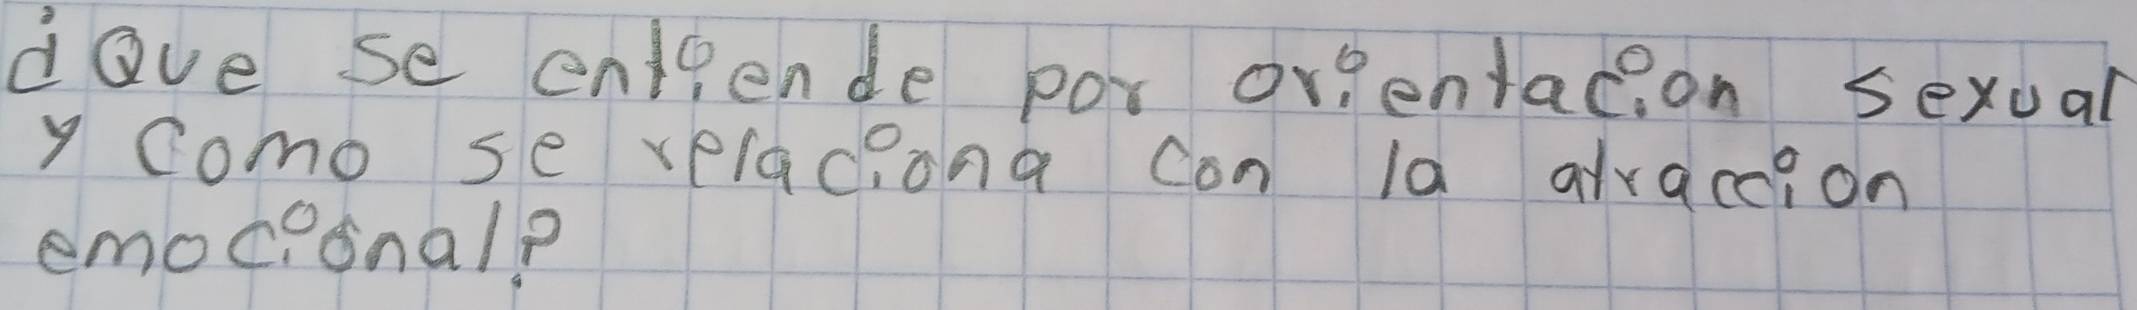 ¿Que se entiende por orientacion sexual
y como se relaciona con la atraccion
emocional?